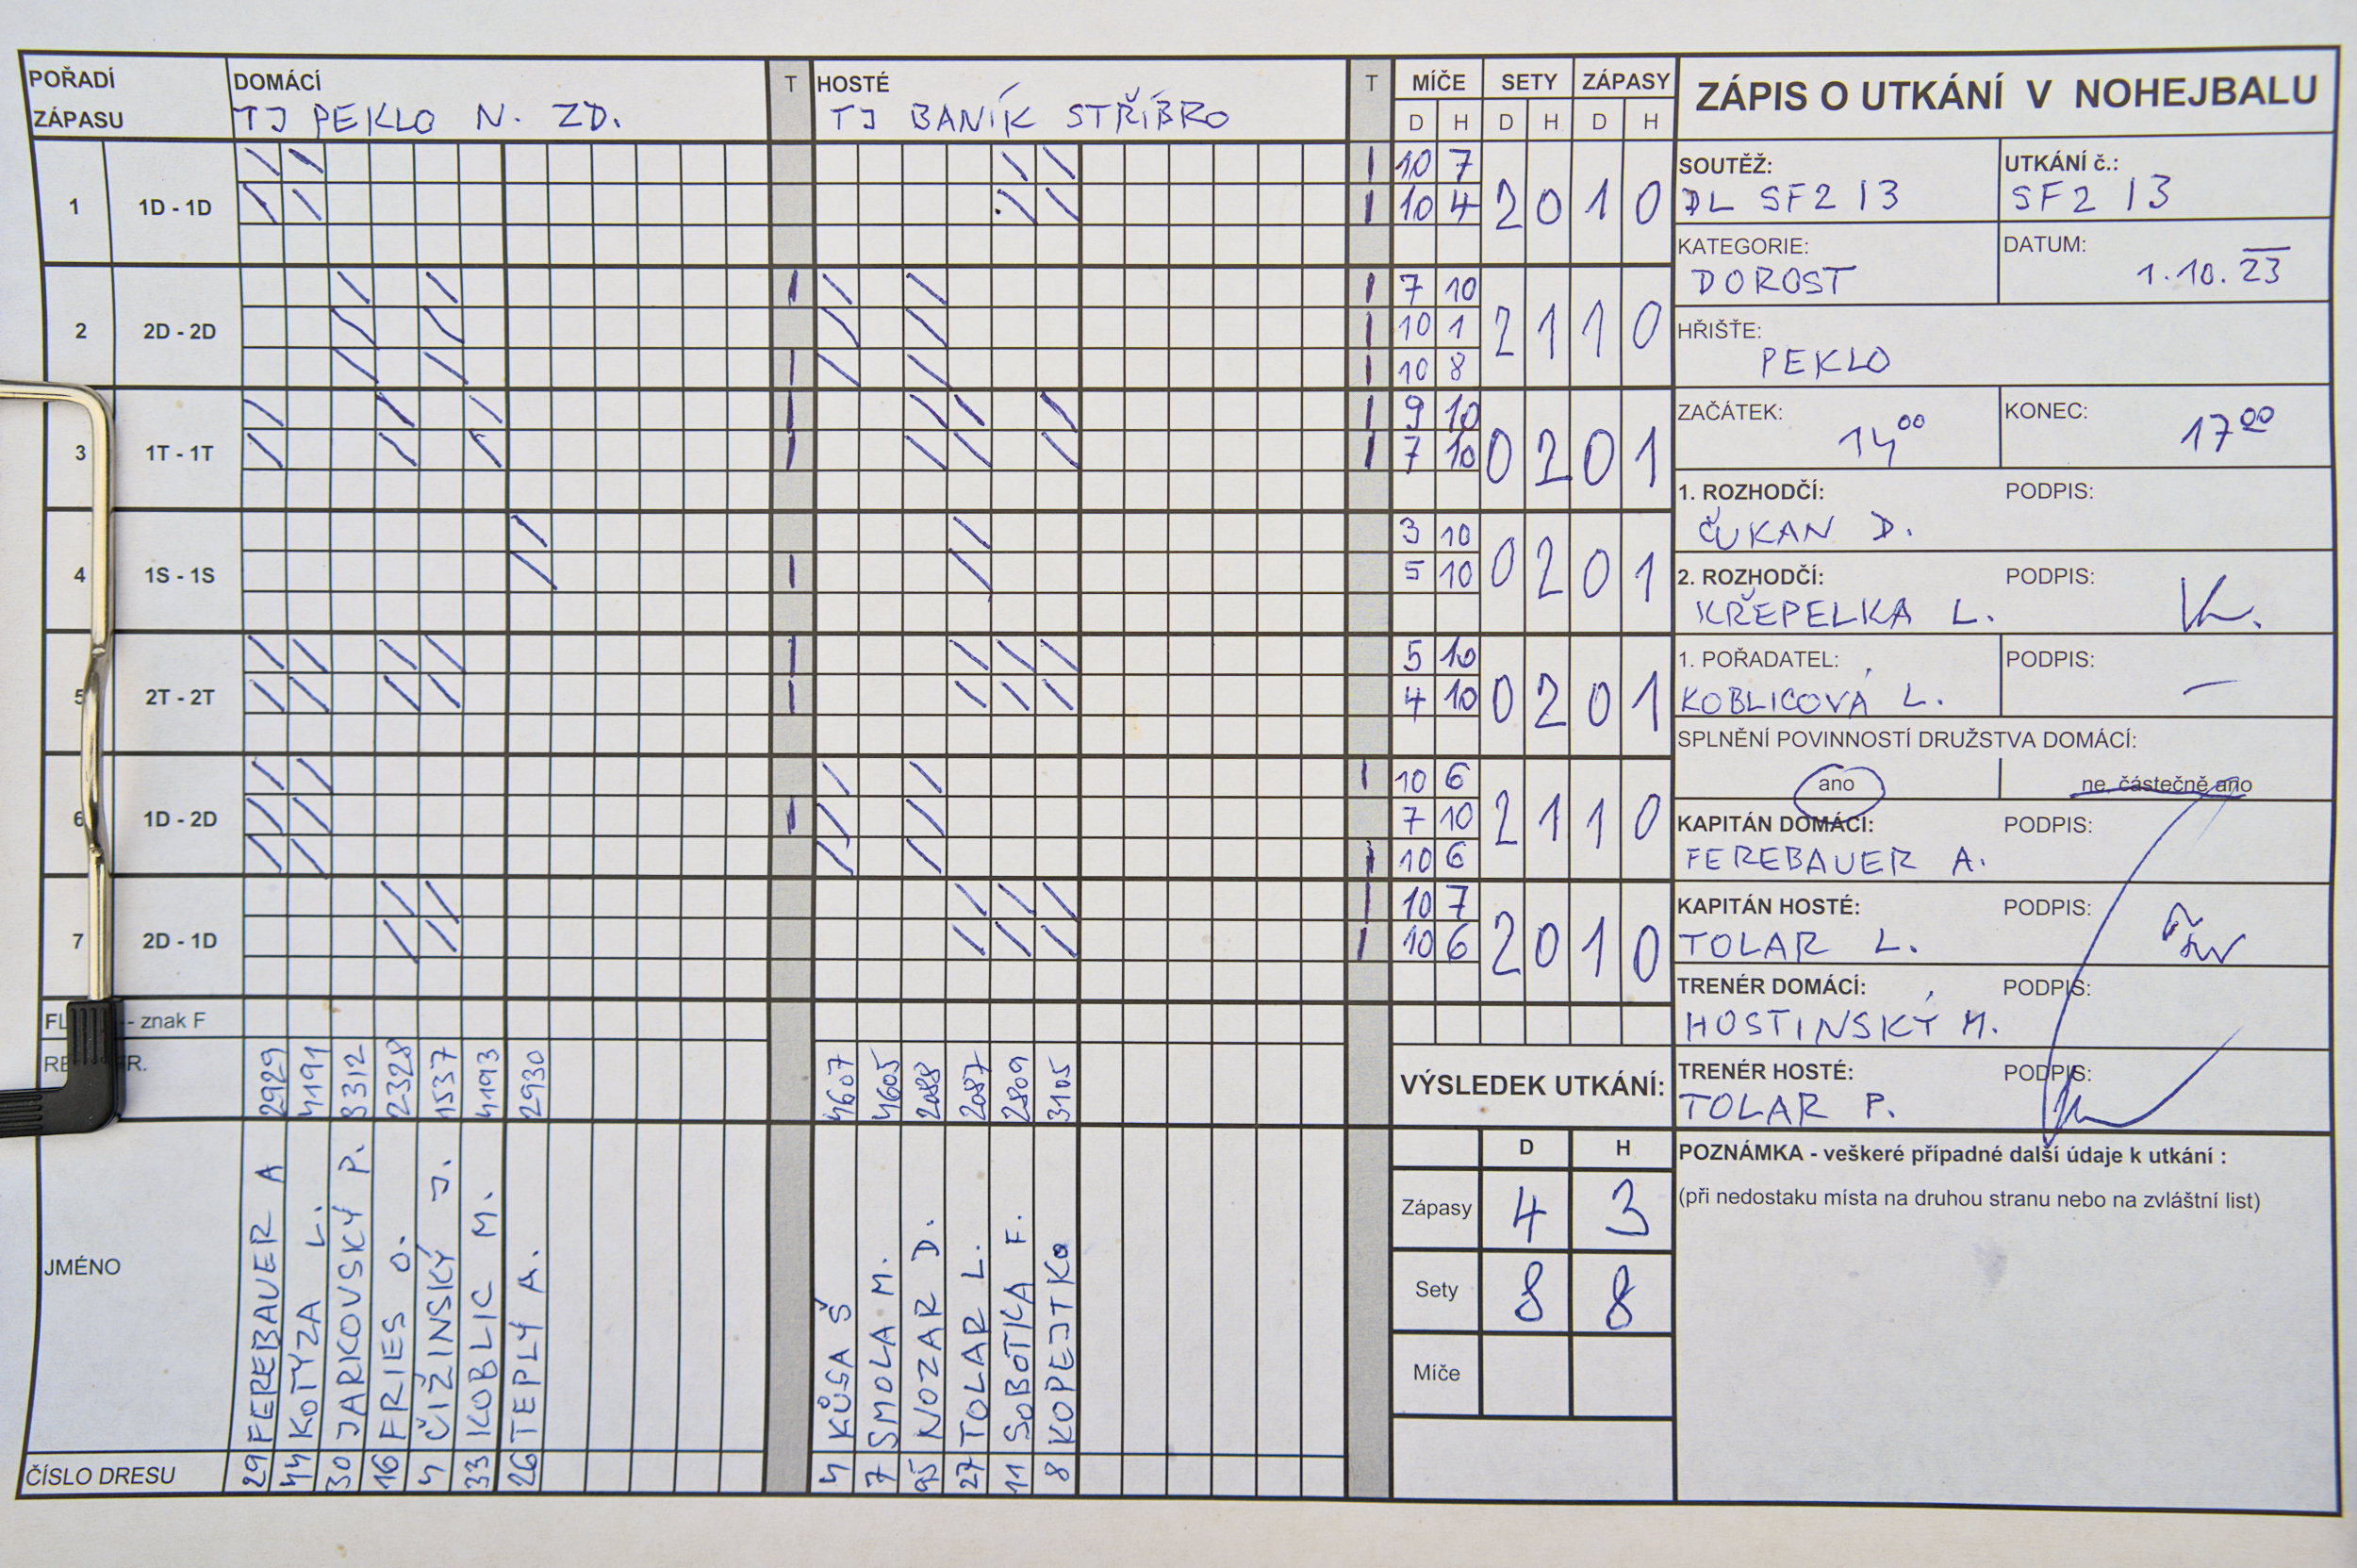 POŘADÍ ZÁPASU DOMÁCÍ T HOSTÉ T MÍČE SETY ZÁPASY
TJ PEKLO N. ZD. TJ BANÍK STŘÍBRO D H D H D H
ZÁPIS O UTKÁNÍ V NOHEJBALU
1 1D - 1D 10 7 2 0 1 0
10 4
2 2D - 2D 7 10 2 1 1 0
10 1
10 8
3 1T - 1T 9 10 0 2 0 1
7 10
4 1S - 1S 3 10 0 2 0 1
5 10
5 2T - 2T 5 10 0 2 0 1
4 10
6 1D - 2D 10 6 2 1 1 0
7 10
10 6
7 2D - 1D 10 7 2 0 1 0
10 6
- znak F
2929 4191 3312 2328 1537 4193 2930 4607 4605 2088 2087 2809 3105
JMÉNO
FEREBAUER A
KOTYZA L.
JARKOVSKÝ P.
FRIES O.
ČIŽINSKÝ J.
KOBLIC M.
TEPLÝ A.
KŮSA Š
SMOLA M.
NOZAR D.
TOLAR L.
SOBOTKA F.
KOPEJTKO
ČÍSLO DRESU 29 44 30 16 4 33 26 4 7 95 27 11 8
VÝSLEDEK UTKÁNÍ:
D H
Zápasy 4 3
Sety 8 8
Míče
SOUTĚŽ: UTKÁNÍ č.:
DL SF2 13 SF2 13
KATEGORIE: DATUM:
DOROST 1.10.23
HŘIŠŤE:
PEKLO
ZAČÁTEK: 14 00 KONEC: 17 00
1. ROZHODČÍ: PODPIS:
ČUKAN D.
2. ROZHODČÍ: PODPIS:
KŘEPELKA L.
1. POŘADATEL: PODPIS:
KOBLICOVÁ L.
SPLNĚNÍ POVINNOSTÍ DRUŽSTVA DOMÁCÍ:
ano ne, částečně ano
KAPITÁN DOMÁCÍ: PODPIS:
FEREBAUER A.
KAPITÁN HOSTÉ: PODPIS:
TOLAR L.
TRENÉR DOMÁCÍ: PODPIS:
HOSTINSKÝ M.
TRENÉR HOSTÉ: PODPIS:
TOLAR P.
POZNÁMKA - veškeré případné další údaje k utkání :
(při nedostaku místa na druhou stranu nebo na zvláštní list)